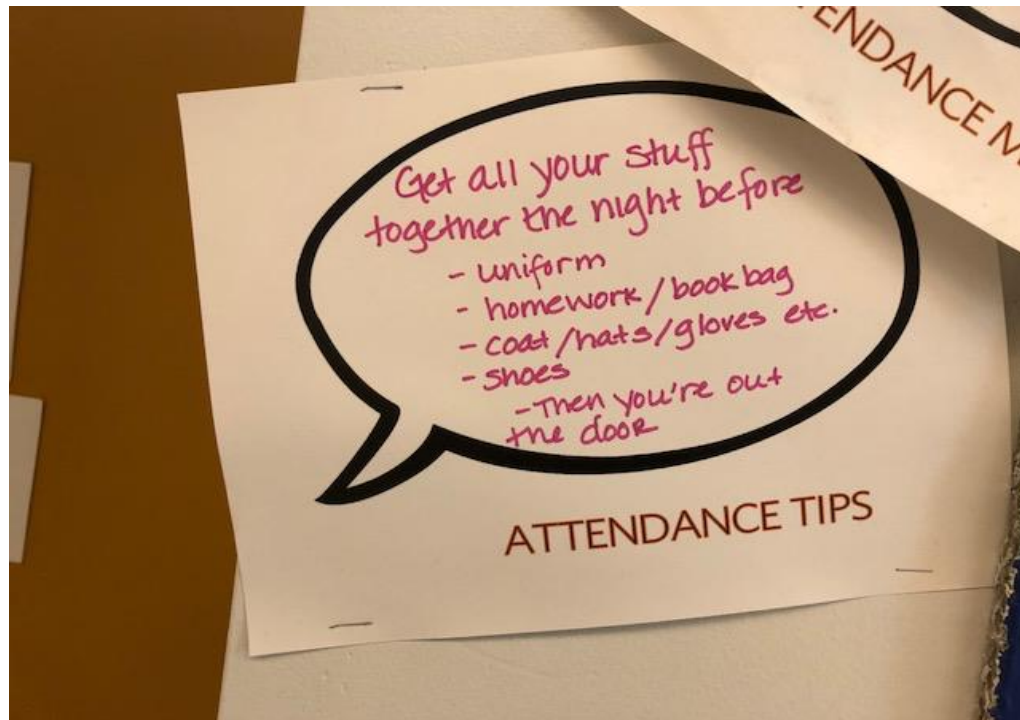 Get all your stuff
together the night before
- uniform
- homework/book bag
- coat/hats/gloves etc.
- shoes
- Then you're out
the door
ATTENDANCE TIPS